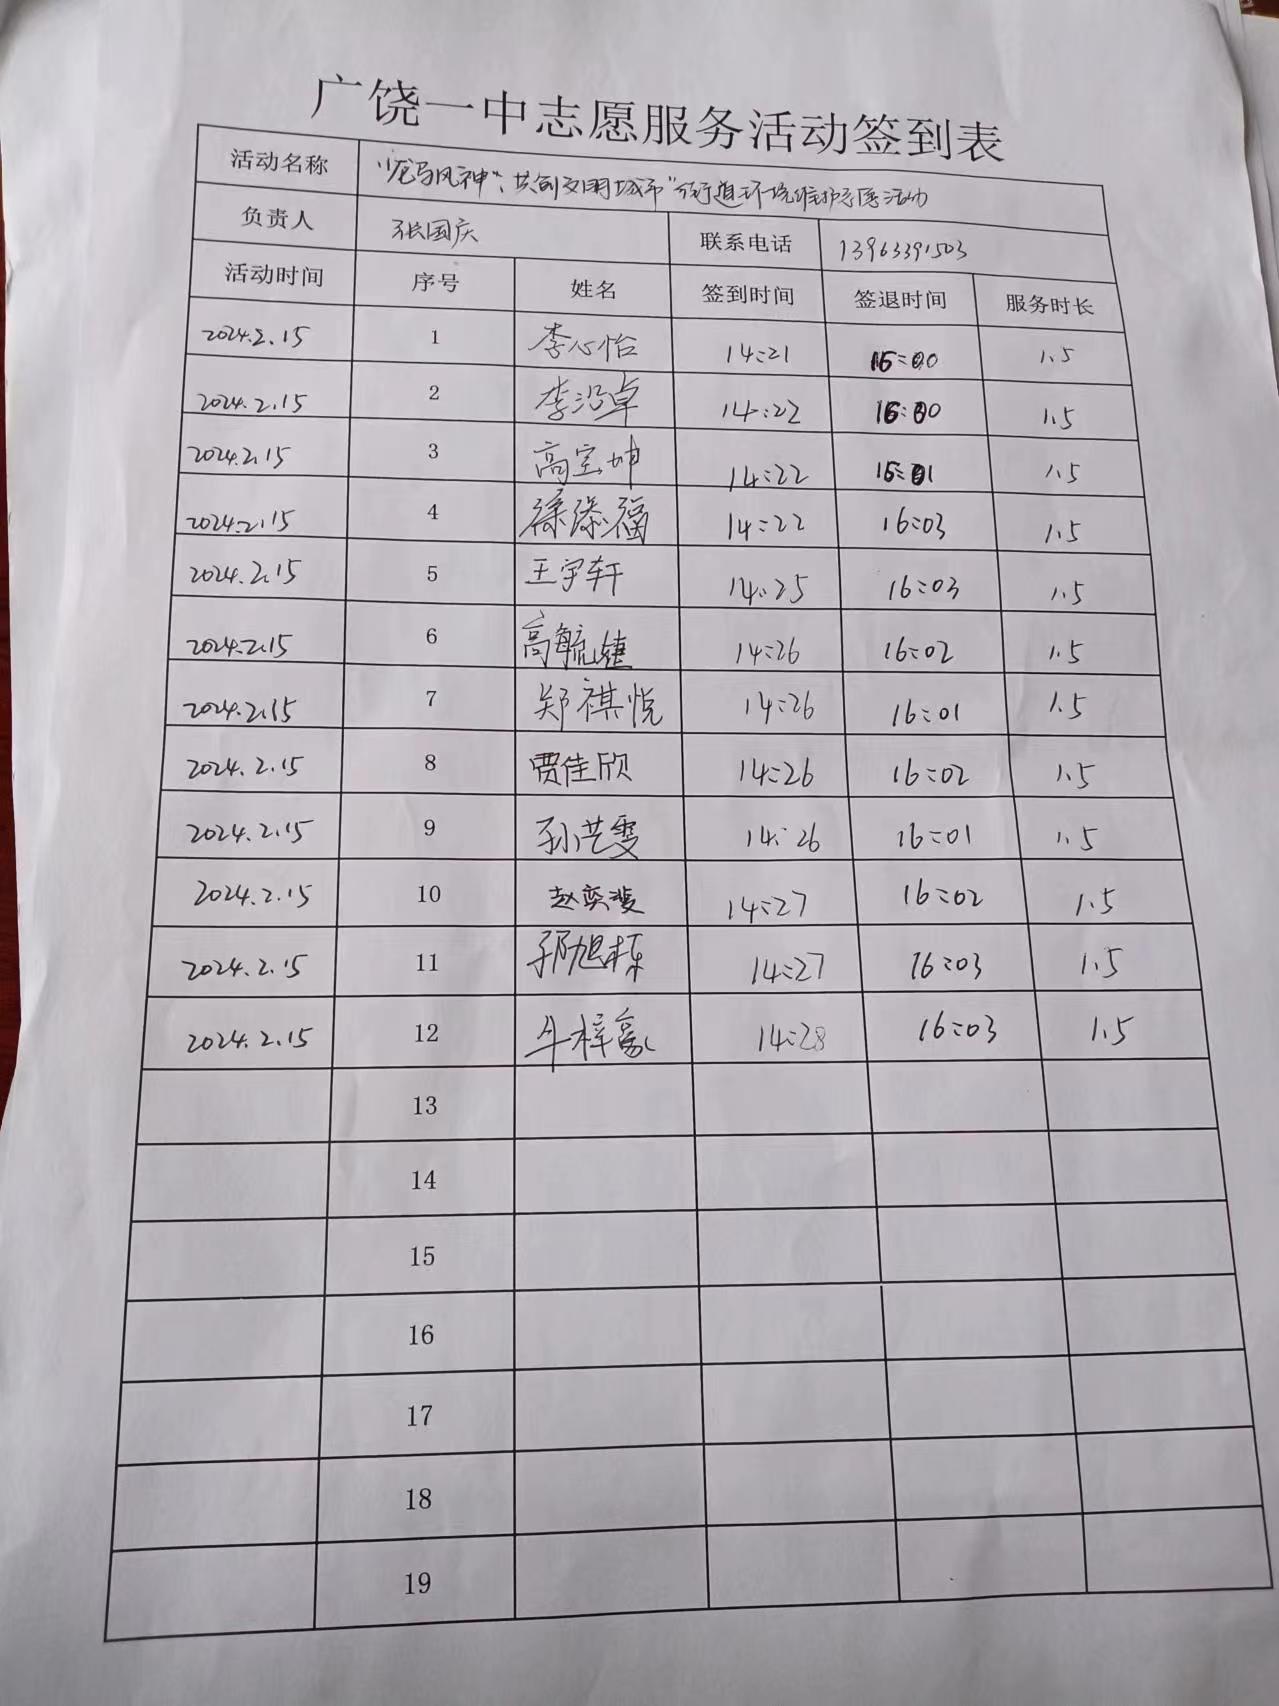 广饶一中志愿服务活动签到表
活动名称 "龙马风神"、共创文明城市"街道环境维护志愿活动
负责人 张国庆 联系电话 13963391503
活动时间 序号 姓名 签到时间 签退时间 服务时长
2024.2.15 1 李心怡 14:21 16:00 1.5
2024.2.15 2 李沿卓 14:22 16:00 1.5
2024.2.15 3 高宝坤 14:22 16:01 1.5
2024.2.15 4 徐添福 14:22 16:03 1.5
2024.2.15 5 王宇轩 14:25 16:03 1.5
2024.2.15 6 高毓婕 14:26 16:02 1.5
2024.2.15 7 郑祺悦 14:26 16:01 1.5
2024.2.15 8 贾佳欣 14:26 16:02 1.5
2024.2.15 9 孙艺雯 14:26 16:01 1.5
2024.2.15 10 赵奕斐 14:27 16:02 1.5
2024.2.15 11 旭栋 14:27 16:03 1.5
2024.2.15 12 牛梓豪 14:28 16:03 1.5
13
14
15
16
17
18
19